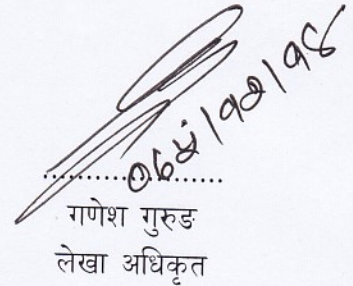 ०७५।१२।१४
....................
गणेश गुरुङ
लेखा अधिकृत